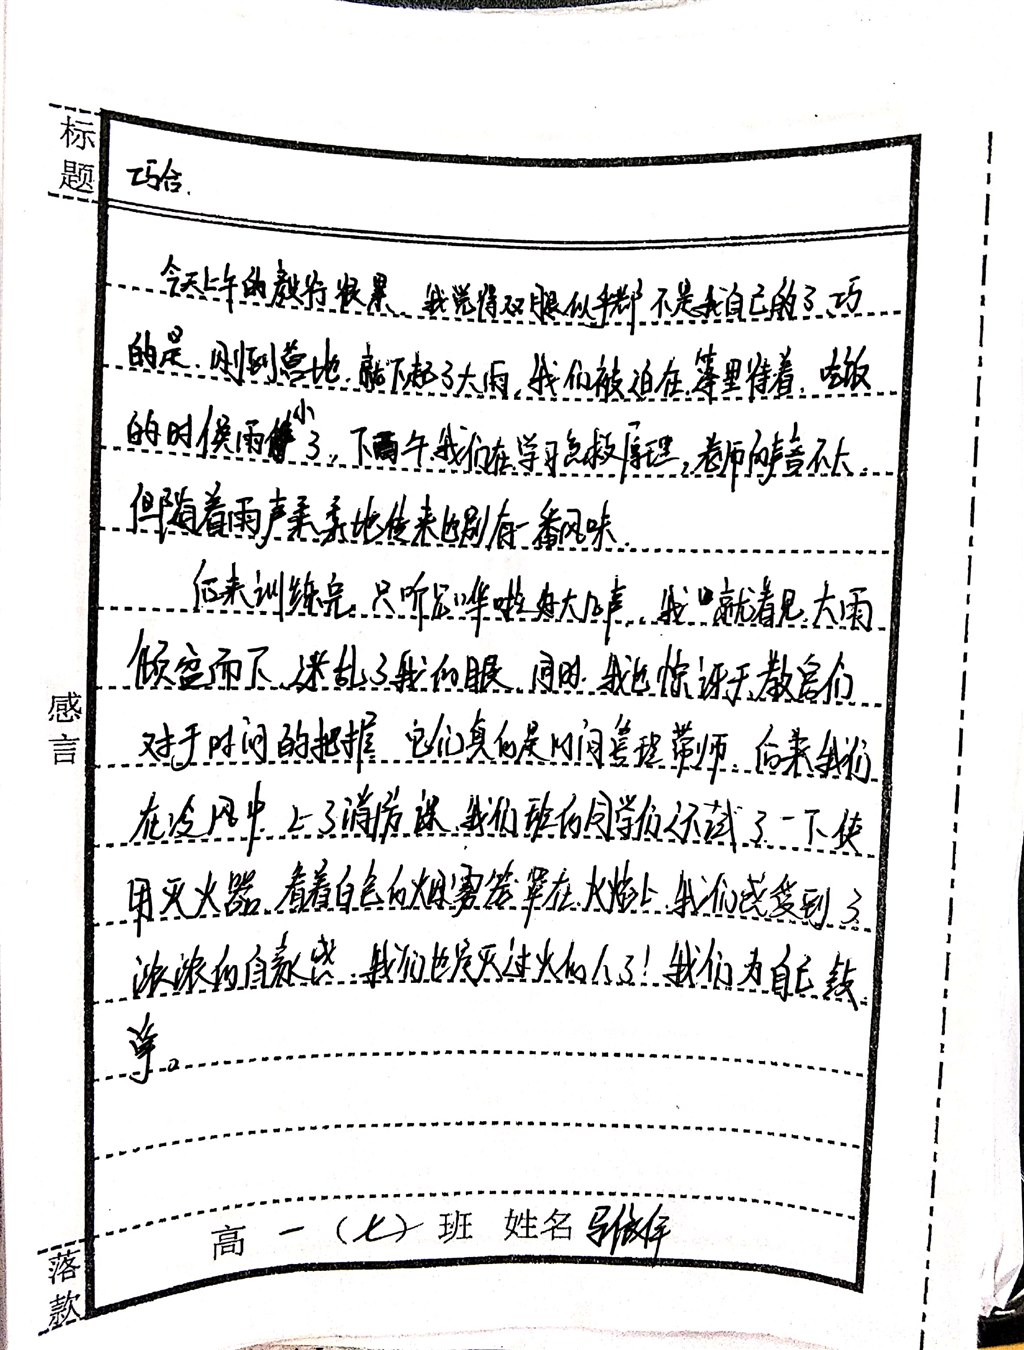 标题
巧合.
今天上午的教行很累、我觉得双腿似乎都不是我自己的了.巧
的是.刚到营地.就下起了大雨,我们被迫在等里待着.吃饭
的时候雨小了,下午我们在学习急救原理,老师的声音不大.
但随着雨声柔柔地传来也别有一番风味.
后来训练完.只听到哗啦好大几声.我就看见大雨
倾盆而下.迷乱了我的眼.同时.我也惊讶于教官们
对于时间的把握.它们真的是时间管理带师.后来我们
在冷风中上了消防课.我们班的同学们还试了一下使
用灭火器.看着白色的烟雾笼罩在火焰上.我们感受到了
浓浓的自豪感.我们也是灭过火的人了!我们为自己鼓
掌。
感言
高一(七)班 姓名
落款